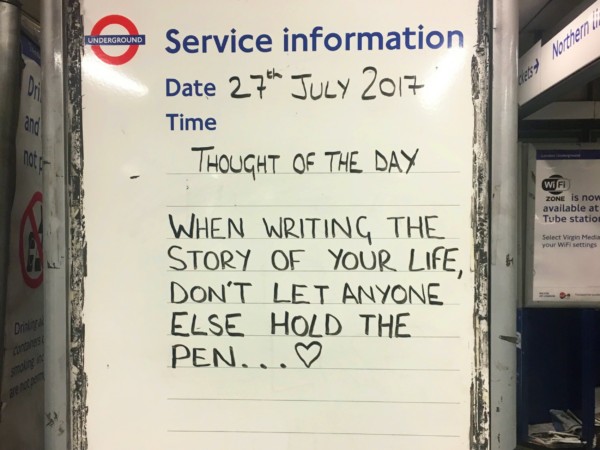 UNDERGROUND
Service information
Date 27th JULY 2017
Time
THOUGHT OF THE DAY
WHEN WRITING THE
STORY OF YOUR LIFE,
DON'T LET ANYONE
ELSE HOLD THE
PEN...♡
and
not
Northern
WiFi
ZONE is now
available at
Tube
Select Virgin Media
your WiFi settings